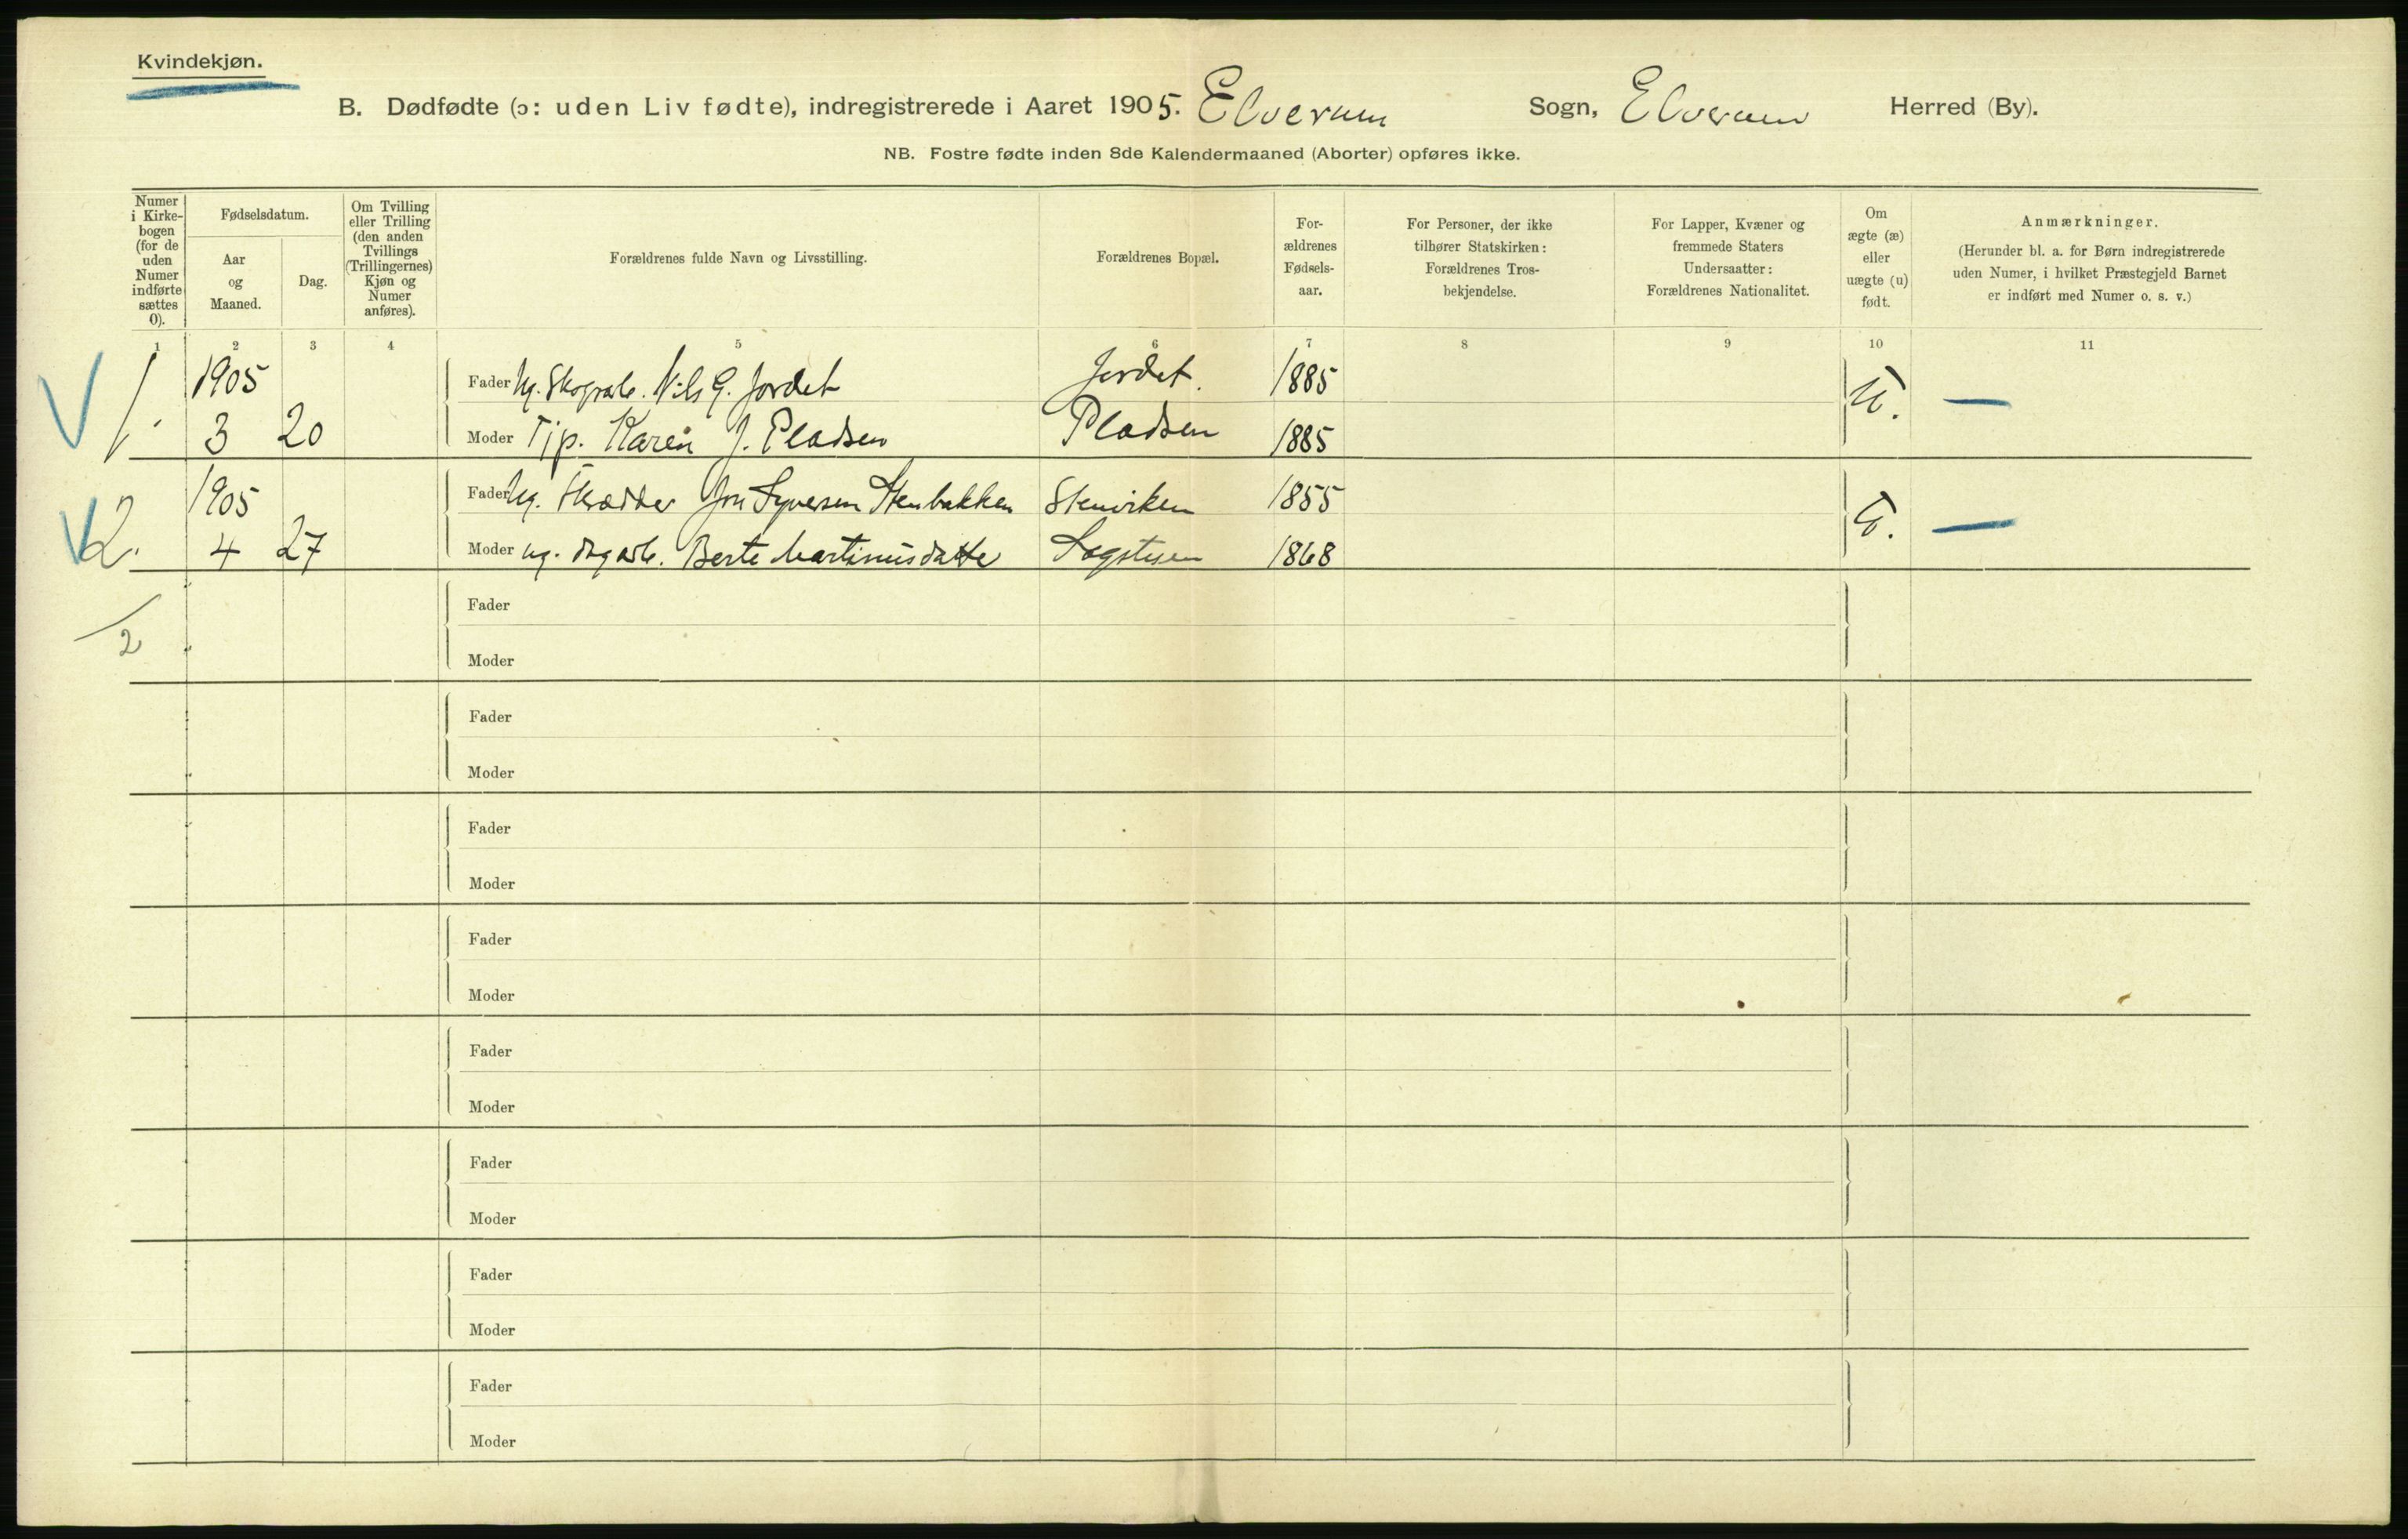 Kvindekjøn.
B. Dødfødte (ɔ: uden Liv fødte), indregistrerede i Aaret 1905. Elverum Sogn, Elverum Herred (By).
NB. Fostre fødte inden 8de Kalendermaaned (Aborter) opføres ikke.
Numer
i Kirke-
bogen
(for de
uden
Numer
indførte
sættes
0).
Fødselsdatum.
Aar
og
Maaned.
Dag.
Om Tvilling
eller Trilling
(den anden
Tvillings
(Trillingernes)
Kjøn og
Numer
anføres).
Forældrenes fulde Navn og Livsstilling.
Forældrenes Bopæl.
For-
ældrenes
Fødsels-
aar.
For Personer, der ikke
tilhører Statskirken:
Forældrenes Tros-
bekjendelse.
For Lapper, Kvæner og
fremmede Staters
Undersaatter:
Forældrenes Nationalitet.
Om
ægte (æ)
eller
uægte (u)
født.
Anmærkninger.
(Herunder bl. a. for Børn indregistrerede
uden Numer, i hvilket Præstegjeld Barnet
er indført med Numer o. s. v.)
1 2 3 4 5 6 7 8 9 10 11
1905 Fader Ug. Skogarb. Nils G. Jordet Jordet. 1885
1. 3 20 Moder Tjp. Karen J. Pladsen Pladsen 1885 U. —
1905 Fader Ug. Skrædder Jon Syversen Stenbakken 1855
2. 4 27 Moder ug. dagarb. Berte Martinusdatte 1868 —
2
Fader
Moder
Fader
Moder
Fader
Moder
Fader
Moder
Fader
Moder
Fader
Moder
Fader
Moder
Fader
Moder